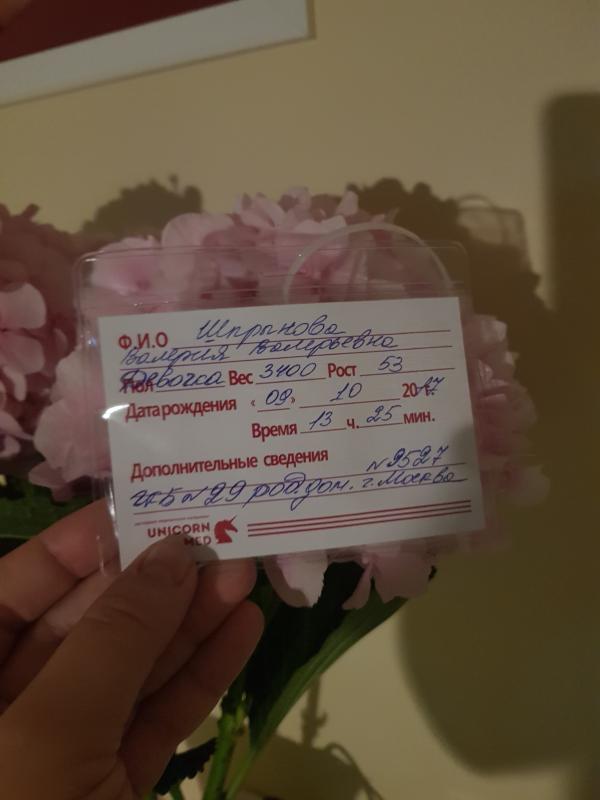 Ф.И.О Шпрынова
Валерия Валерьевна
Пол Девочка Вес 3400 Рост 53
Дата рождения «09» 10 2017
Время 13 ч. 25 мин.
Дополнительные сведения №9527
ГКБ №29 род.дом. г. Москва
UNICORN
MED